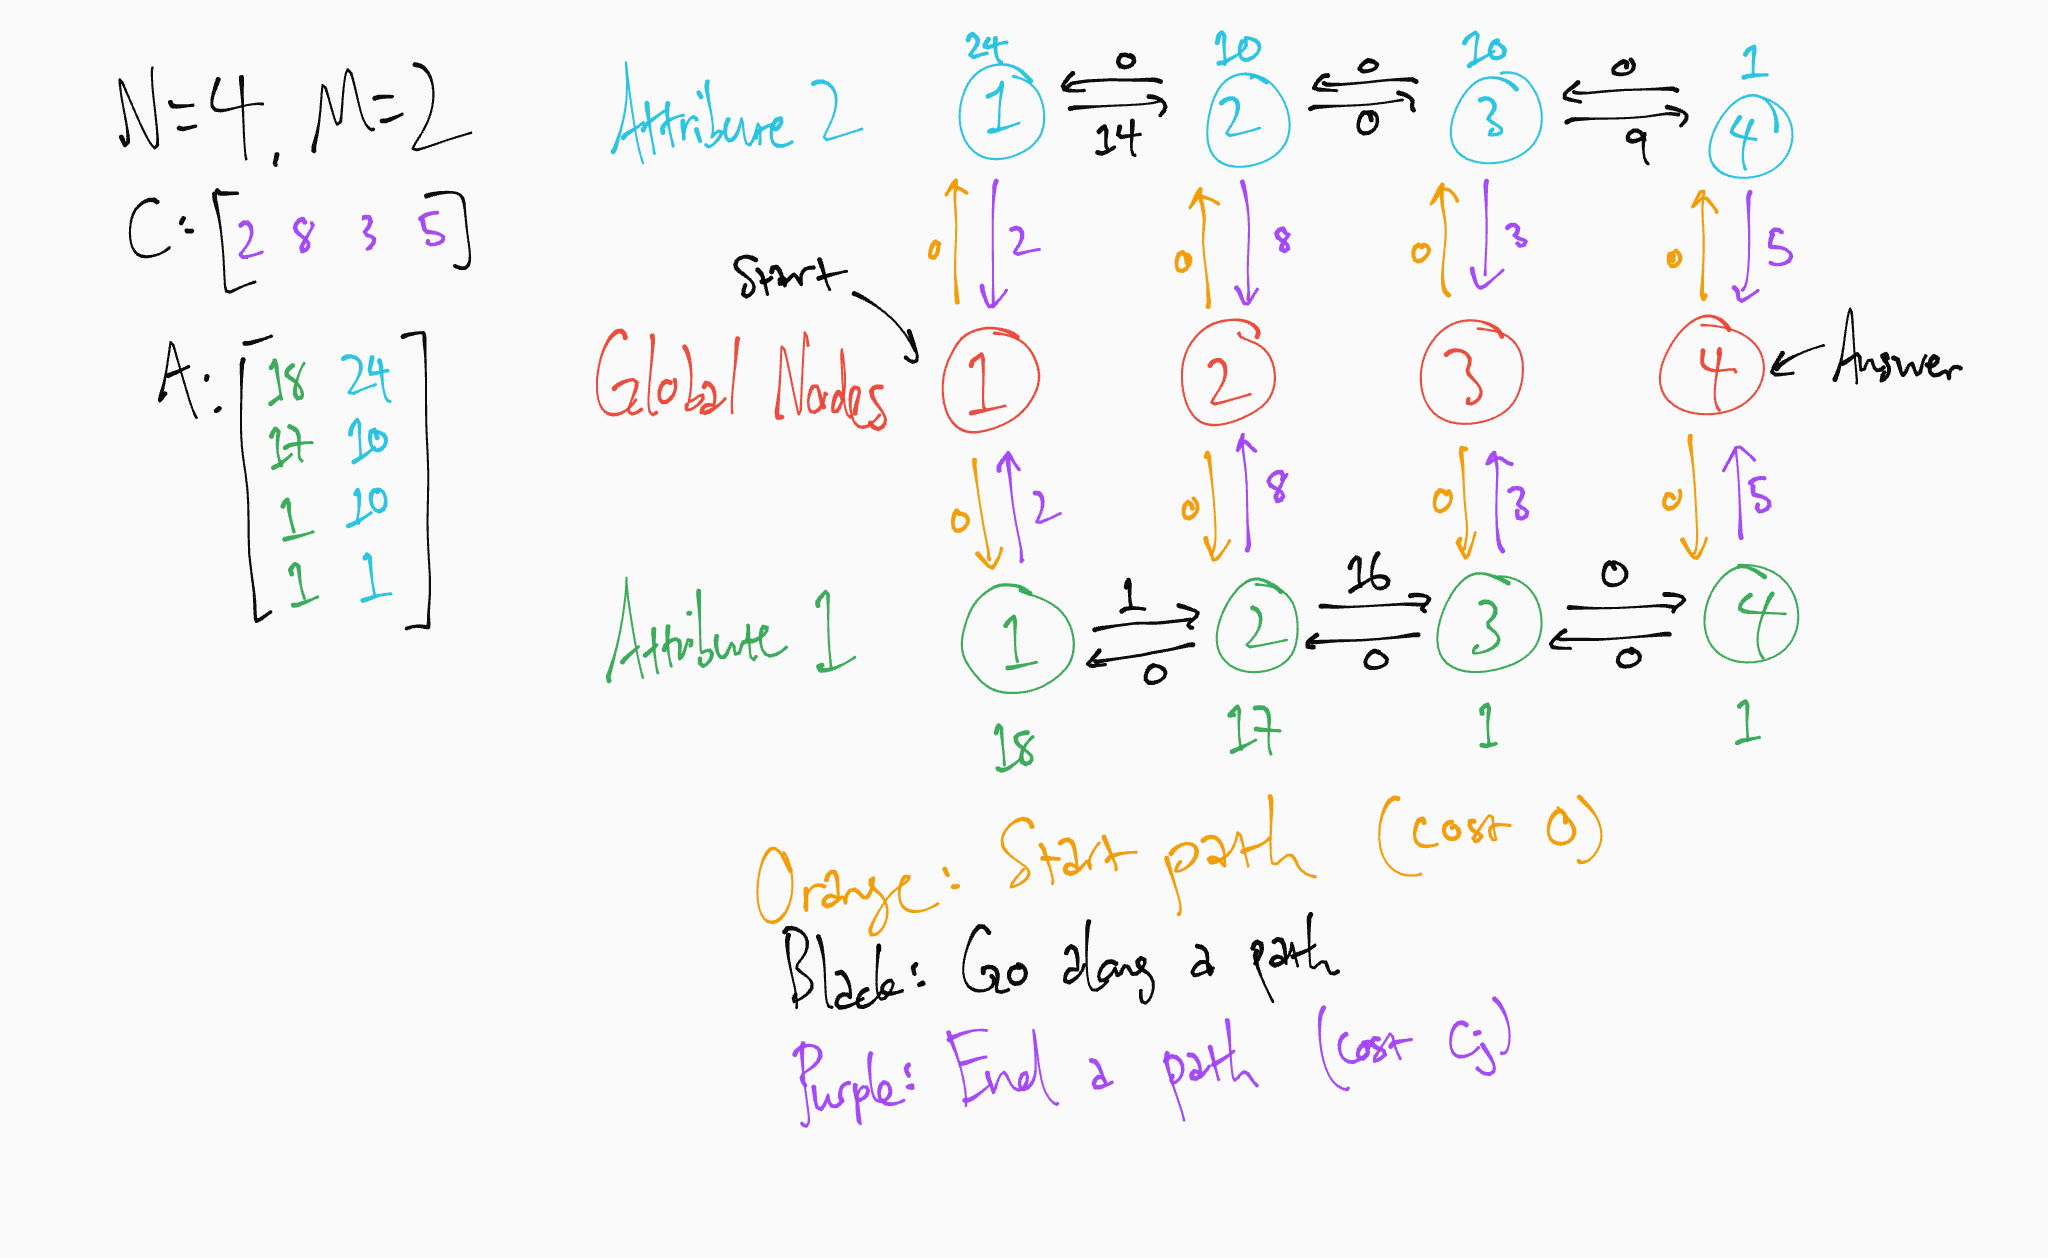 N=4, M=2
C: [2 8 3 5]
A: [18 24
17 10
1 10
1 1]
24 10 10 1
Attribute 2 1 0 14 2 0 0 3 0 9 4
0 2 0 8 0 3 0 5
Start
Global Nodes 1 2 3 4 Answer
0 2 0 8 0 3 0 5
Attribute 1 1 1 0 2 16 0 3 0 0 4
18 17 1 1
Orange: Start path (cost 0)
Black: Go along a path
Purple: End a path (cost Cj)